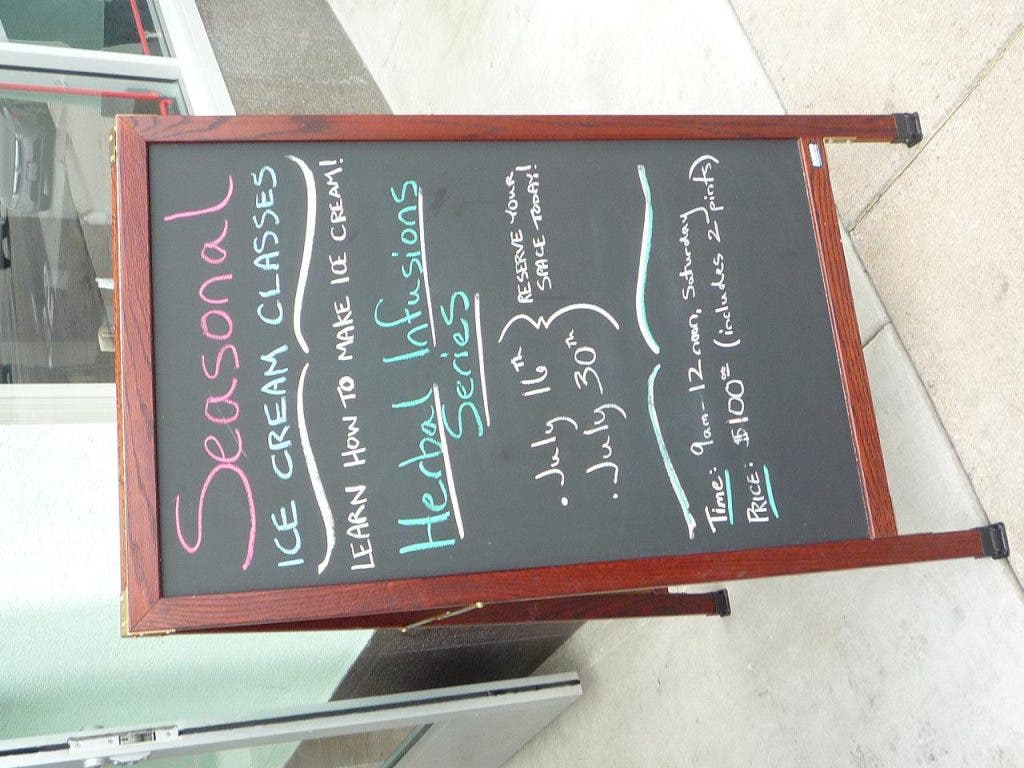 Seasonal
ICE CREAM CLASSES
LEARN HOW TO MAKE ICE CREAM!
Herbal Infusions
Series
• July 16th
• July 30th
RESERVE YOUR
SPACE TODAY!
Time: 9am-12 noon, Saturday
PRICE: $100.00 (includes 2 pints)